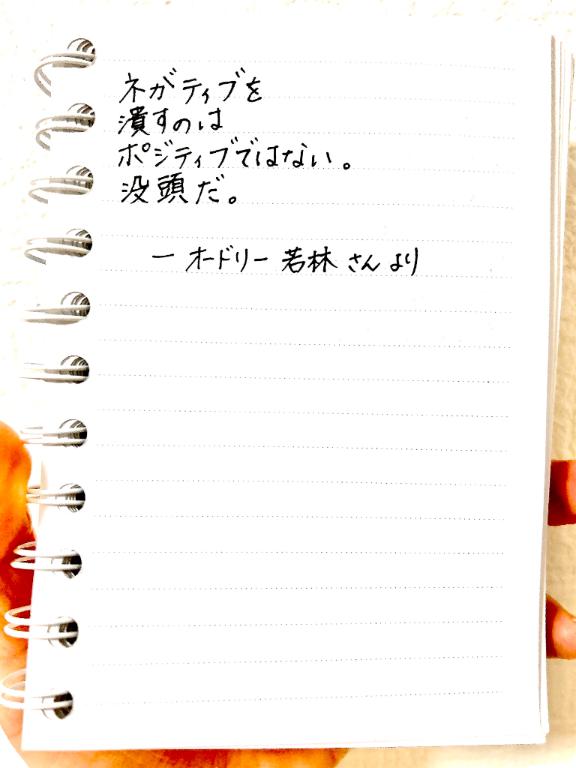 ネガティブを
潰すのは
ポジティブではない。
没頭だ。
ー オードリー 若林 さん より